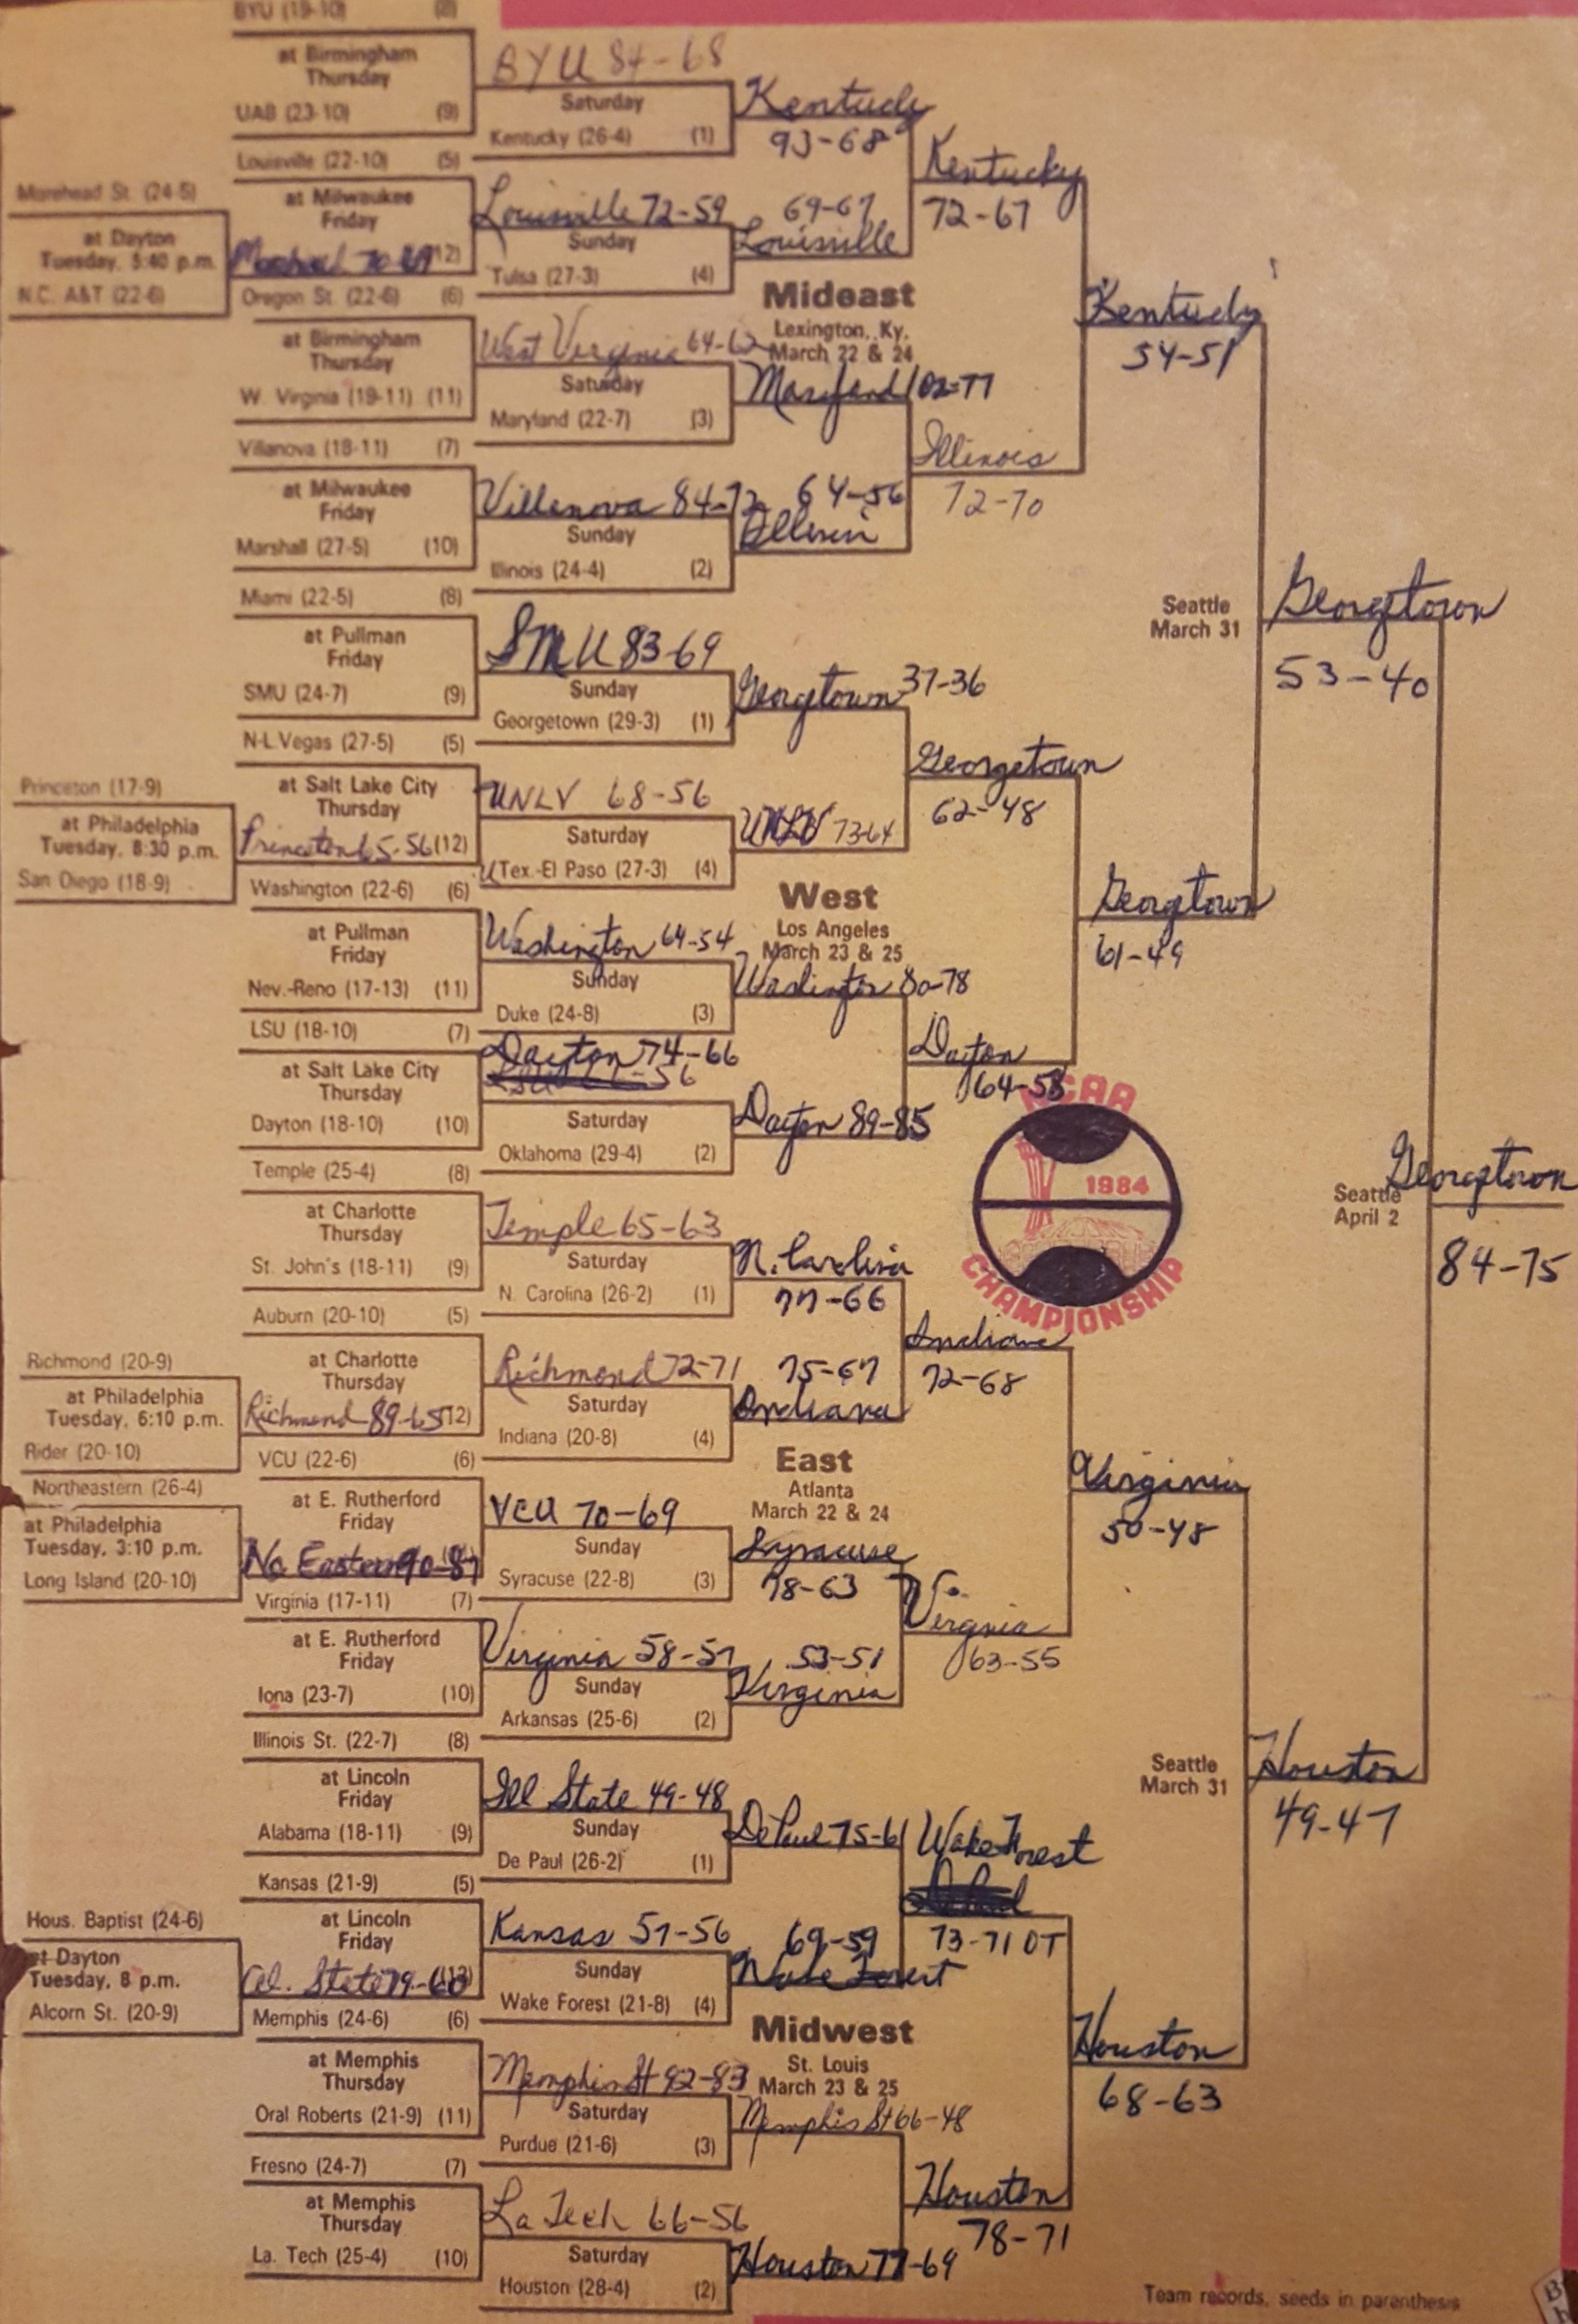 BYU (19-10) (8)
at Birmingham
Thursday
UAB (23-10) (9)
BYU 84-68
Saturday
Kentucky (26-4) (1)
Kentucky
93-68
Louisville (22-10) (5)
Morehead St. (24-5)
at Dayton
Tuesday, 5:40 p.m.
N.C. A&T (22-6)
at Milwaukee
Friday
70-69 (12)
Louisville 72-59
Sunday
Tulsa (27-3) (4)
69-67
Louisville
Kentucky
72-67
Oregon St. (22-6) (6)
at Birmingham
Thursday
W. Virginia (19-11) (11)
West Virginia 64-62
Saturday
Maryland (22-7) (3)
Mideast
Lexington, Ky.
March 22 & 24
Maryland 102-77
Villanova (18-11) (7)
at Milwaukee
Friday
Marshall (27-5) (10)
Villanova 84-72
Sunday
Illinois (24-4) (2)
64-56
Illinois
72-70
Kentucky
54-51
Miami (22-5) (8)
at Pullman
Friday
SMU (24-7) (9)
SMU 83-69
Sunday
Georgetown (29-3) (1)
Georgetown 37-36
Seattle
March 31
Georgetown
53-40
N-L.Vegas (27-5) (5)
Princeton (17-9)
at Philadelphia
Tuesday, 8:30 p.m.
San Diego (18-9)
at Salt Lake City
Thursday
Princeton 65-56 (12)
UNLV 68-56
Saturday
UTex.-El Paso (27-3) (4)
UNLV 73-64
Georgetown
62-48
Washington (22-6) (6)
at Pullman
Friday
Nev.-Reno (17-13) (11)
Washington 64-54
Sunday
Duke (24-8) (3)
West
Los Angeles
March 23 & 25
Washington 80-78
Georgetown
61-49
LSU (18-10) (7)
at Salt Lake City
Thursday
Dayton (18-10) (10)
Dayton 74-66
Saturday
Oklahoma (29-4) (2)
Dayton 89-85
Dayton
64-58
NCAA
1984
CHAMPIONSHIP
Seattle
April 2
Georgetown
84-75
Temple (25-4) (8)
at Charlotte
Thursday
St. John's (18-11) (9)
Temple 65-63
Saturday
N. Carolina (26-2) (1)
N. Carolina
77-66
Auburn (20-10) (5)
Richmond (20-9)
at Philadelphia
Tuesday, 6:10 p.m.
Rider (20-10)
at Charlotte
Thursday
Richmond 89-65 (12)
Richmond 72-71
Saturday
Indiana (20-8) (4)
75-67
Indiana
Indiana
72-68
VCU (22-6) (6)
Northeastern (26-4)
at Philadelphia
Tuesday, 3:10 p.m.
Long Island (20-10)
at E. Rutherford
Friday
No Eastern 90-87
VCU 70-69
Sunday
Syracuse (22-8) (3)
East
Atlanta
March 22 & 24
Syracuse
78-63
Virginia
50-48
Virginia (17-11) (7)
at E. Rutherford
Friday
Iona (23-7) (10)
Virginia 58-57
Sunday
Arkansas (25-6) (2)
53-51
Virginia
Virginia
63-55
Illinois St. (22-7) (8)
at Lincoln
Friday
Alabama (18-11) (9)
Ill State 49-48
Sunday
De Paul (26-2) (1)
De Paul 75-61
Seattle
March 31
Houston
49-47
Kansas (21-9) (5)
Hous. Baptist (24-6)
at Dayton
Tuesday, 8 p.m.
Alcorn St. (20-9)
at Lincoln
Friday
79-60
Kansas 57-56
Sunday
Wake Forest (21-8) (4)
69-59
Wake Forest
Wake Forest
73-71 OT
Memphis (24-6) (6)
at Memphis
Thursday
Oral Roberts (21-9) (11)
Memphis St 92-83
Saturday
Purdue (21-6) (3)
Midwest
St. Louis
March 23 & 25
Memphis St 66-48
Houston
68-63
Fresno (24-7) (7)
at Memphis
Thursday
La. Tech (25-4) (10)
La Tech 66-56
Saturday
Houston (28-4) (2)
Houston 77-69
Houston
78-71
Team records, seeds in parenthesis